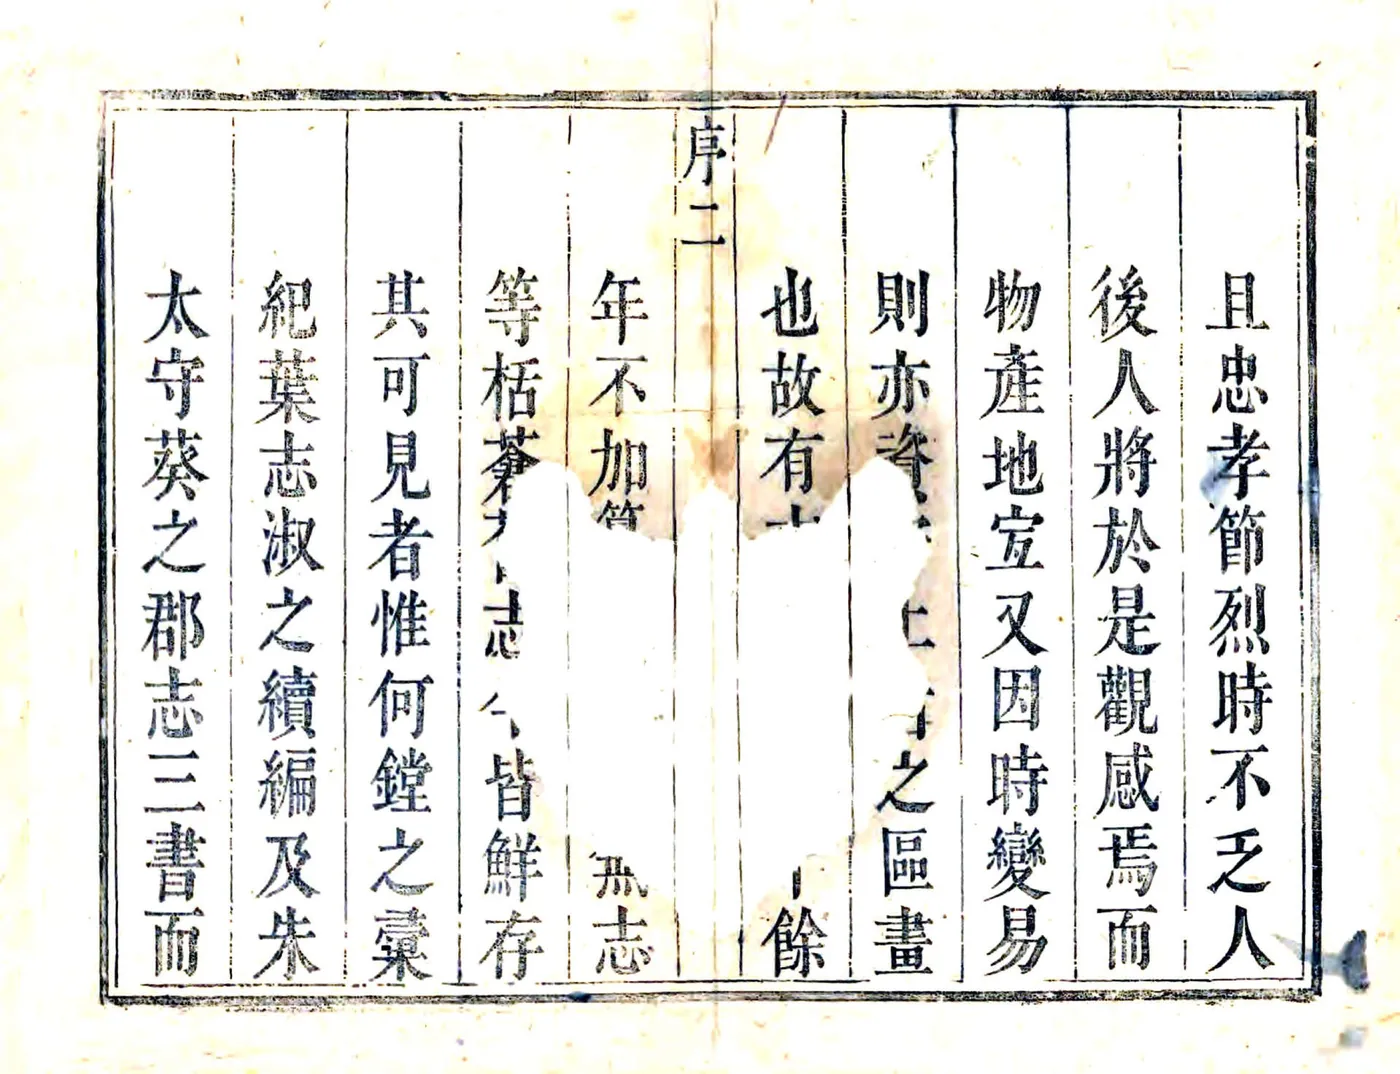 且忠孝節烈時不乏人
後人將於是觀感焉而
物產地宐又因時變易
則亦資之區畫
也故有餘
序二
年不加志
等栝蒼志皆鮮存
其可見者惟何鏜之彚
紀葉志淑之續編及朱
太守葵之郡志三書而